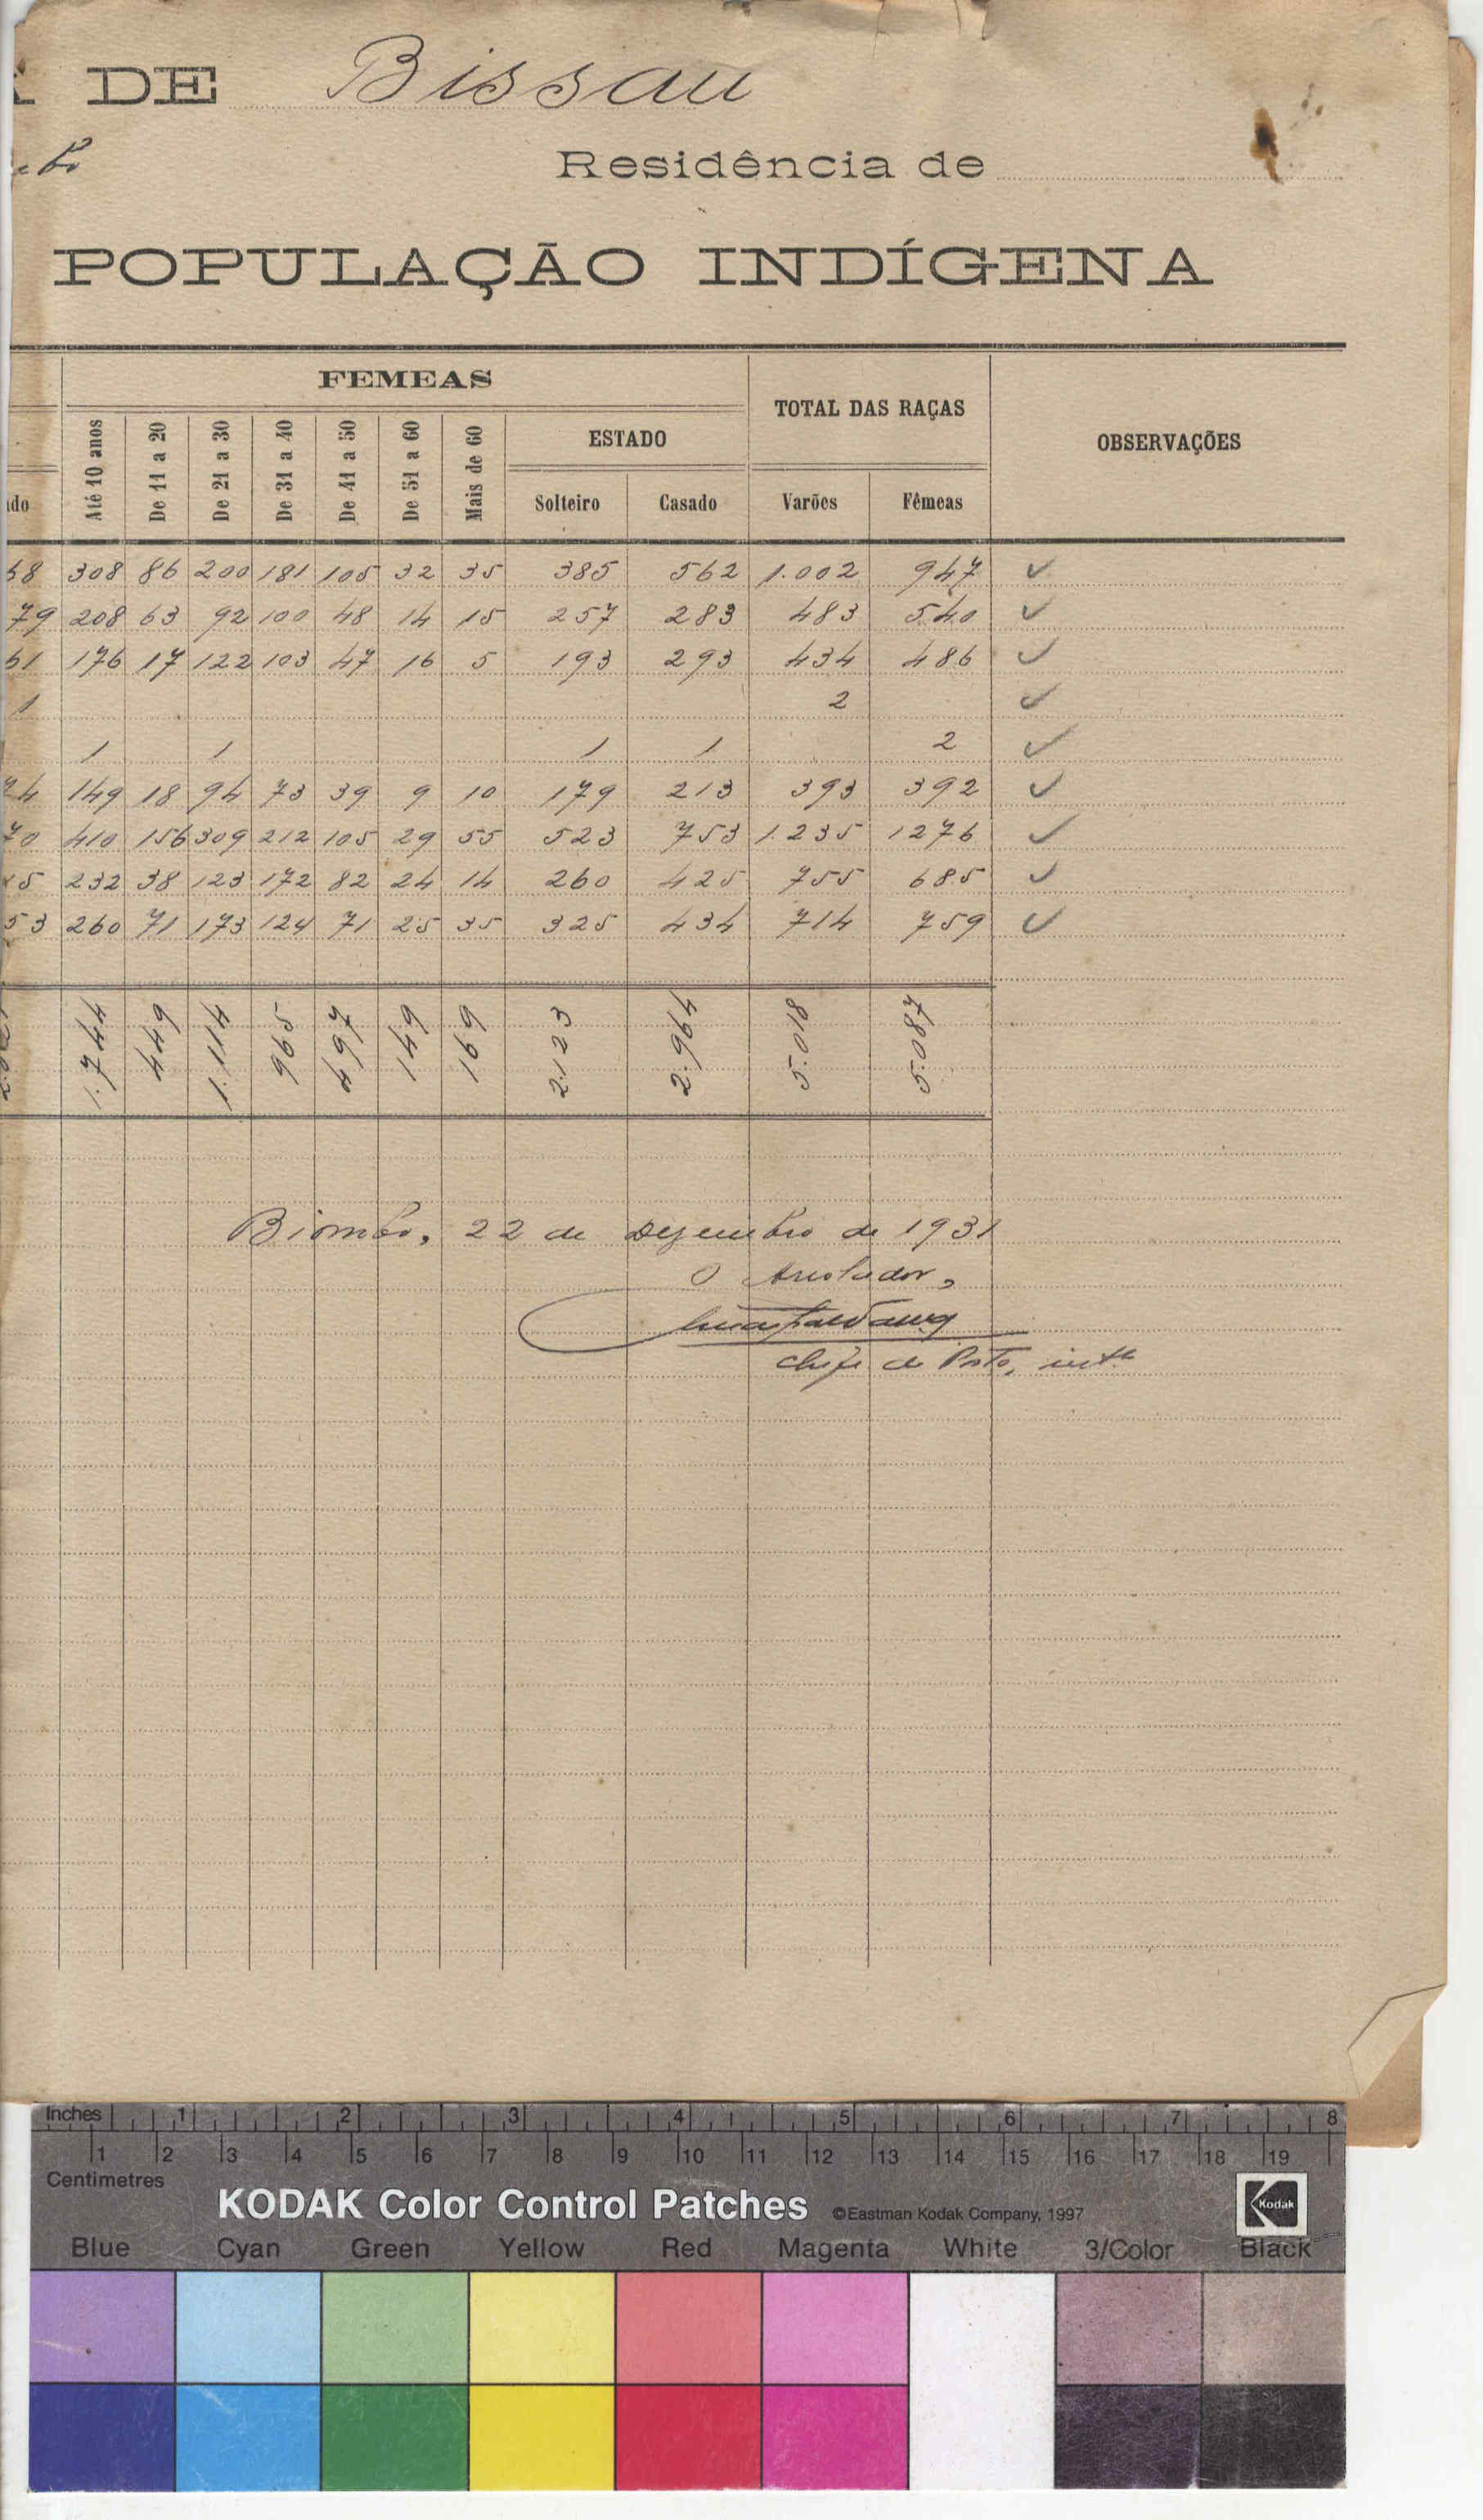 DE Bissau
Residência de
POPULAÇÃO INDÍGENA
FEMEAS
TOTAL DAS RAÇAS
OBSERVAÇÕES
ESTADO
Até 10 anos De 11 a 20 De 21 a 30 De 31 a 40 De 41 a 50 De 51 a 60 Mais de 60 Solteiro Casado Varões Fêmeas
68 308 86 200 181 105 32 35 385 562 1.002 947 ✓
79 208 63 92 100 48 14 15 257 283 483 540 ✓
61 176 17 122 103 47 16 5 193 293 434 486 ✓
1 2 ✓
1 1 1 1 2 ✓
149 18 94 73 39 9 10 179 213 393 392 ✓
70 410 156 309 212 105 29 55 523 753 1.235 1276 ✓
232 38 123 172 82 24 14 260 425 755 685 ✓
53 260 71 173 124 71 25 35 325 434 714 759 ✓
1.744 449 1.114 965 497 149 169 2.123 2.964 5.018 5.087
Biombo, 22 de Dezembro de 1931
O Arrolador,
Chefe de Posto, intº
Inches 1 2 3 4 5 6 7 8
1 2 3 4 5 6 7 8 9 10 11 12 13 14 15 16 17 18 19
Centimetres
KODAK Color Control Patches ©Eastman Kodak Company, 1997 Kodak
Blue Cyan Green Yellow Red Magenta White 3/Color Black